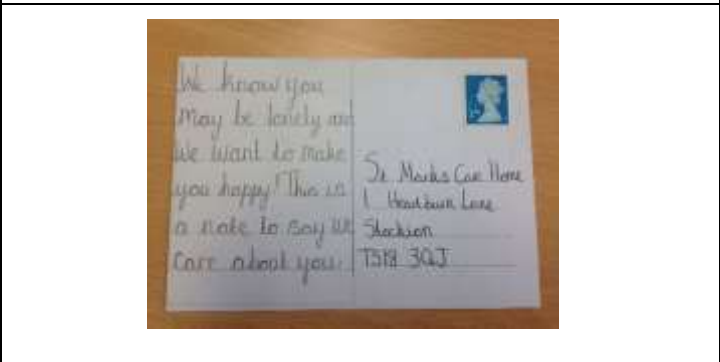 We know you
may be lonely and
we want to make
you happy! This is
a note to say we
care about you.
St Marks Care Home
1 Lane
Stockton
TS19 3QJ